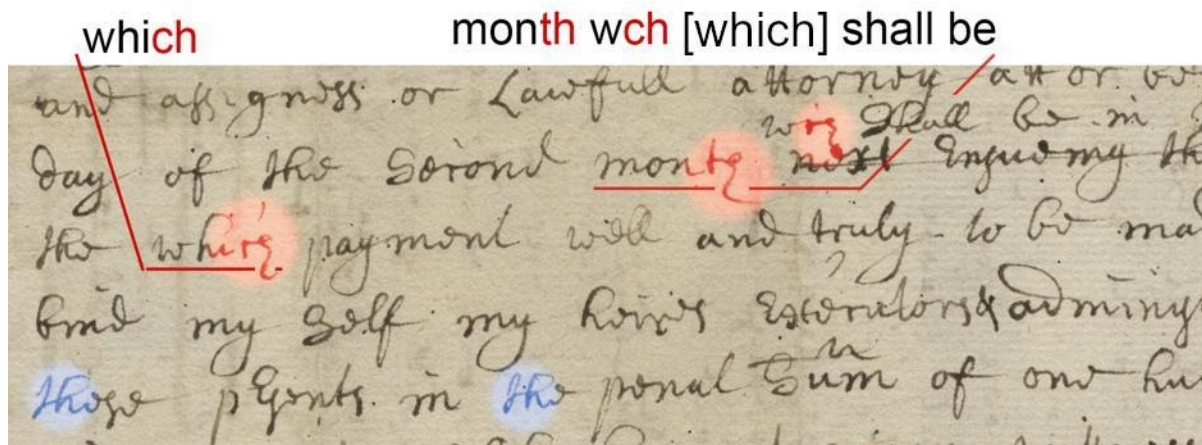 which month wch [which] shall be
and assigness or Lawfull attorney att or be
wch Shall be in
day of the Second month next Ensueing th
the which payment well and truly to be ma
bind my Self my heires Executors & adminis
these psents in the penal Sum of one hu